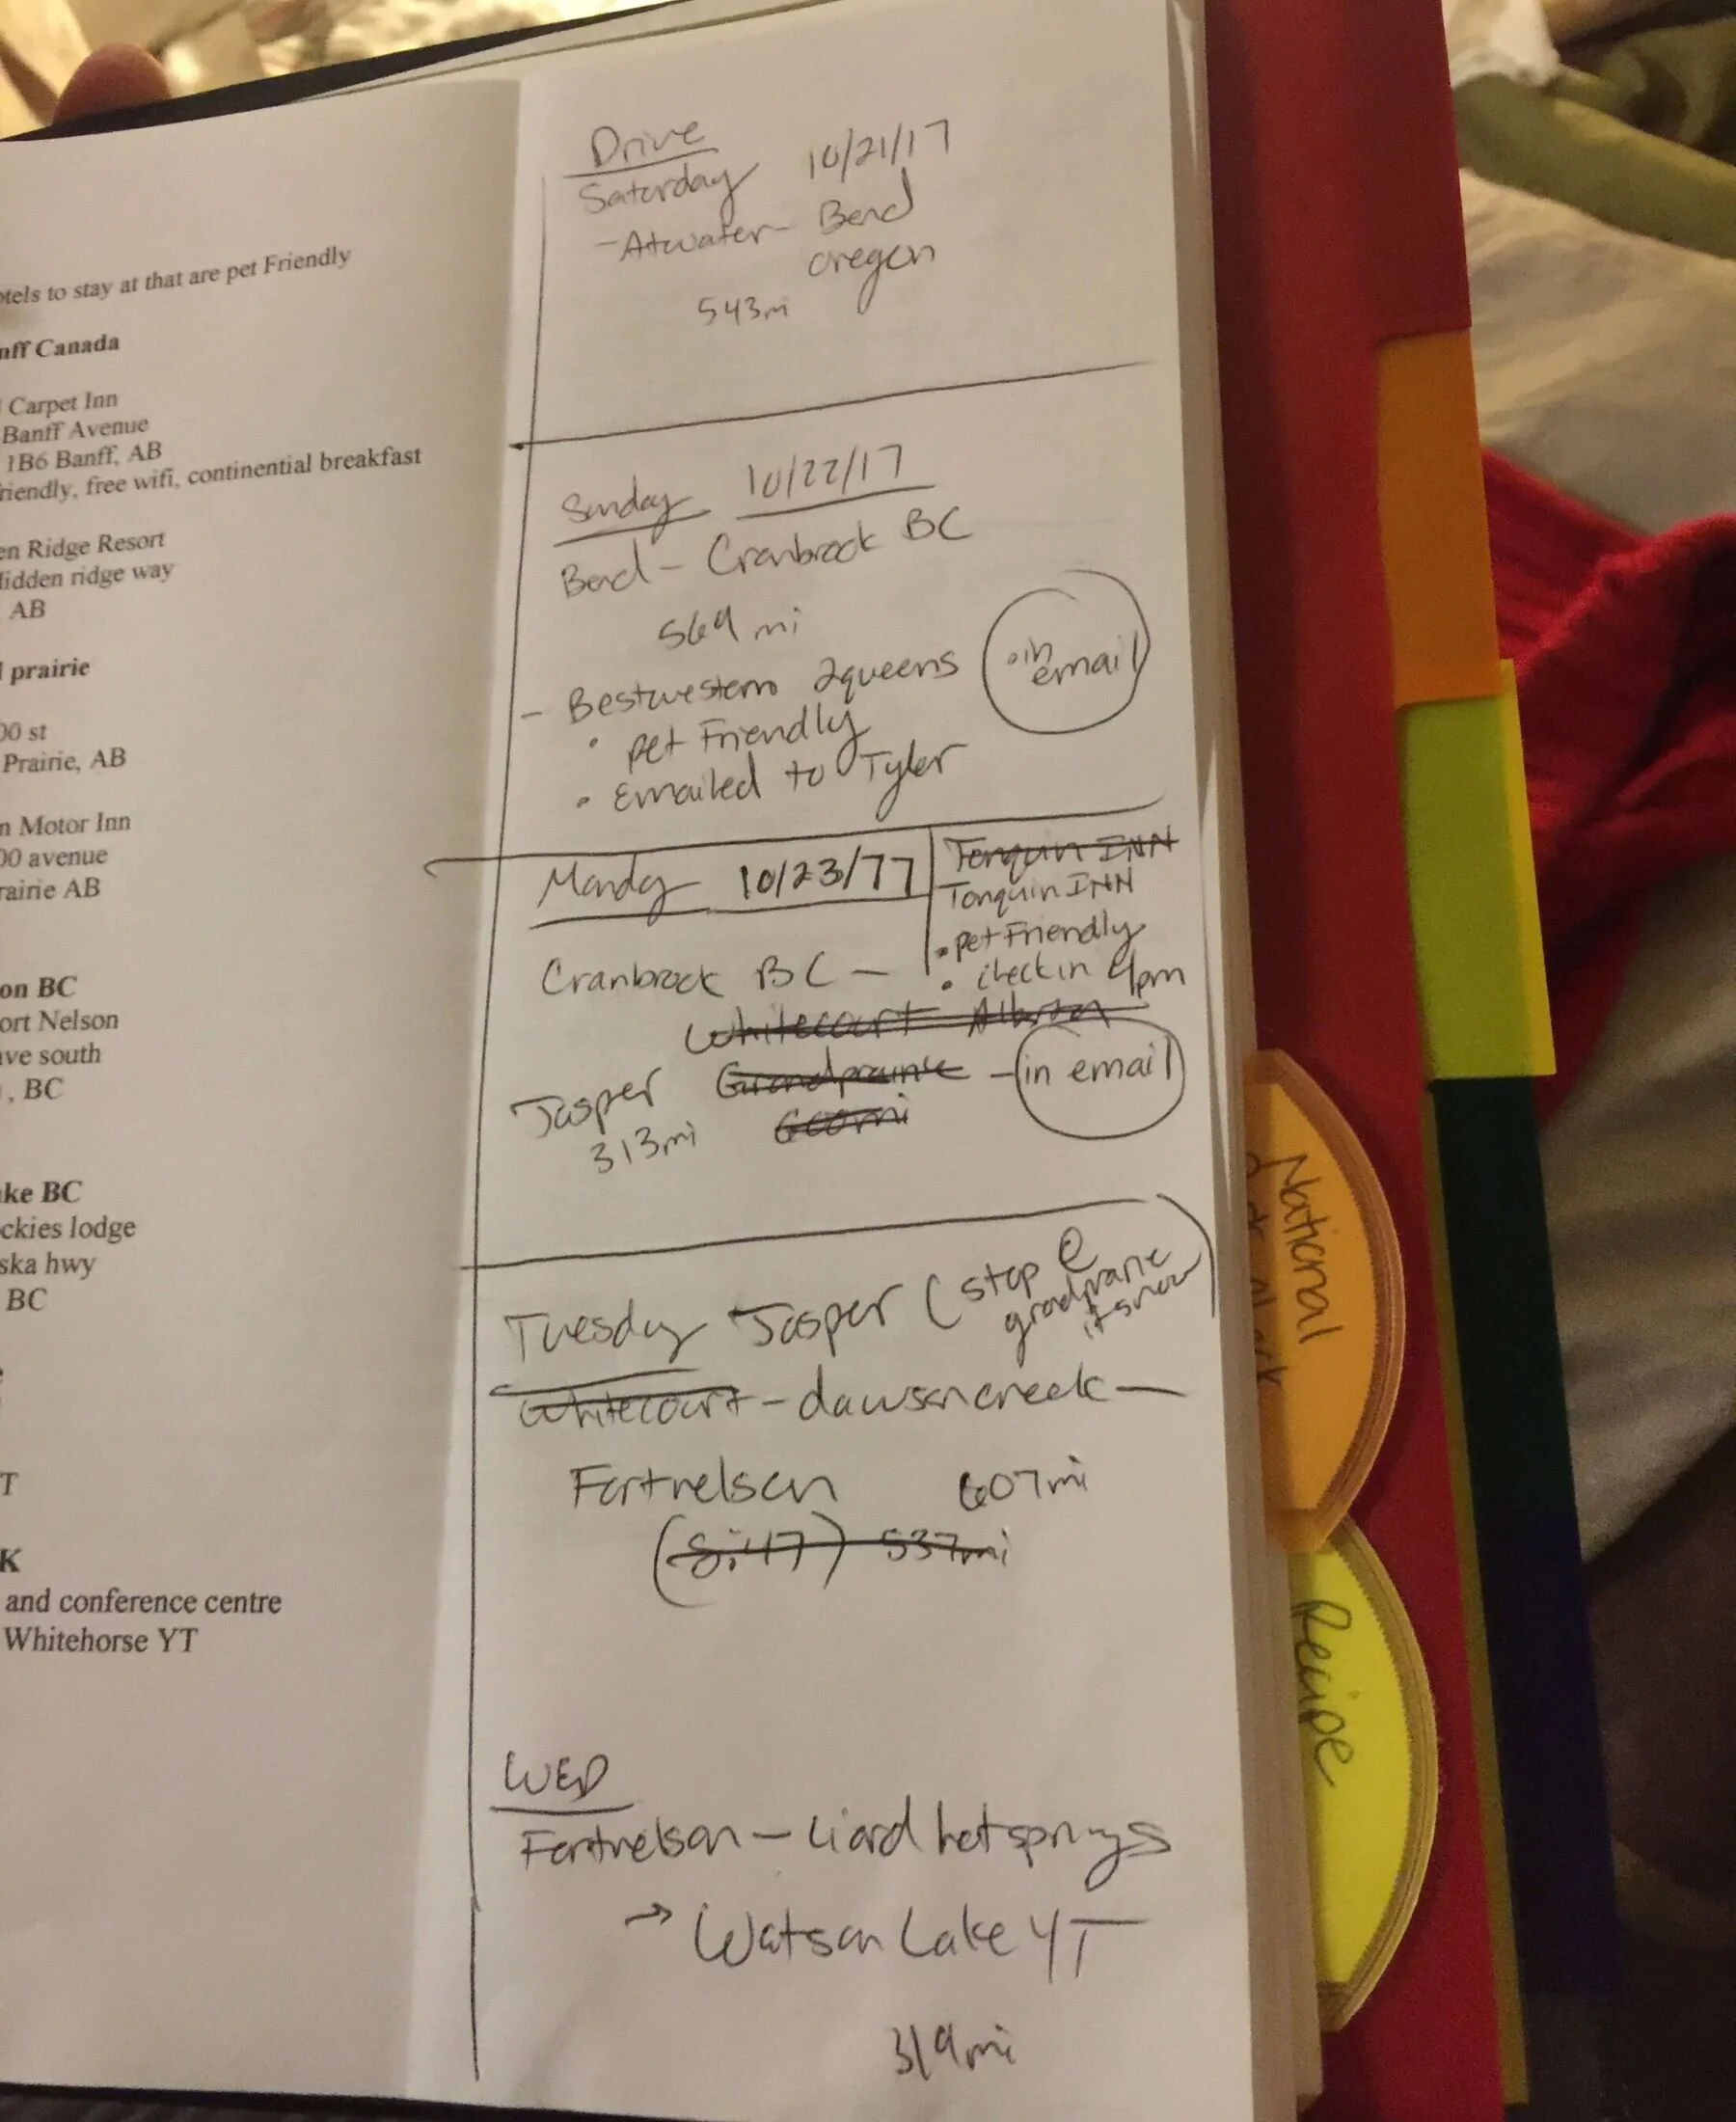 otels to stay at that are pet Friendly
nff Canada
Carpet Inn
Banff Avenue
1B6 Banff, AB
riendly, free wifi, continential breakfast
en Ridge Resort
Hidden ridge way
AB
prairie
00 st
Prairie, AB
n Motor Inn
00 avenue
rairie AB
on BC
ort Nelson
ave south
, BC
ake BC
ckies lodge
ska hwy
BC
T
K
and conference centre
Whitehorse YT
Drive
Saturday 10/21/17
- Atwater - Bend
oregon
543m
Sunday 10/22/17
Bend - Cranbrook BC
569 mi
- Bestwestern 2queens
• in email
• pet Friendly
• Emailed to Tyler
Monday 10/23/77
Tonquin INN
Tonquin INN
• pet Friendly
• check in 4pm
Cranbrook BC -
Whitecourt Alberta
Jasper Grandprairie - in email
313mi 600mi
Tuesday Jasper (stop @
grandprarie
if snow
Whitecourt - dawson creek -
Fortnelson 607mi
(8:47) 537mi
WED
Fortnelson - Liard hotsprings
→ Watson Lake YT
319mi
National
Recipe